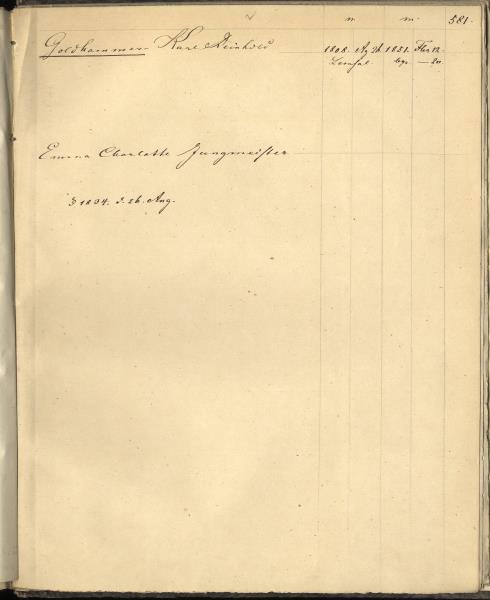 n. m. 581.
Goldhammer Karl Reinhold 1808. Ag 26. 1851. Fbr 12.
Lemsal. bgr. — 20.
Emma Charlotte Jungmeister
1834. d. 26. Aug.